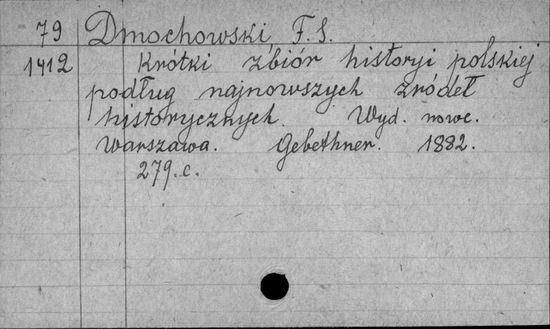 79 Dmochowski F. S.
1412 Krótki zbiór historyi polskiej
podług najnowszych zródeł
historycznych. Wyd. nowe.
Warszawa. Gebethner. 1882.
279. c.